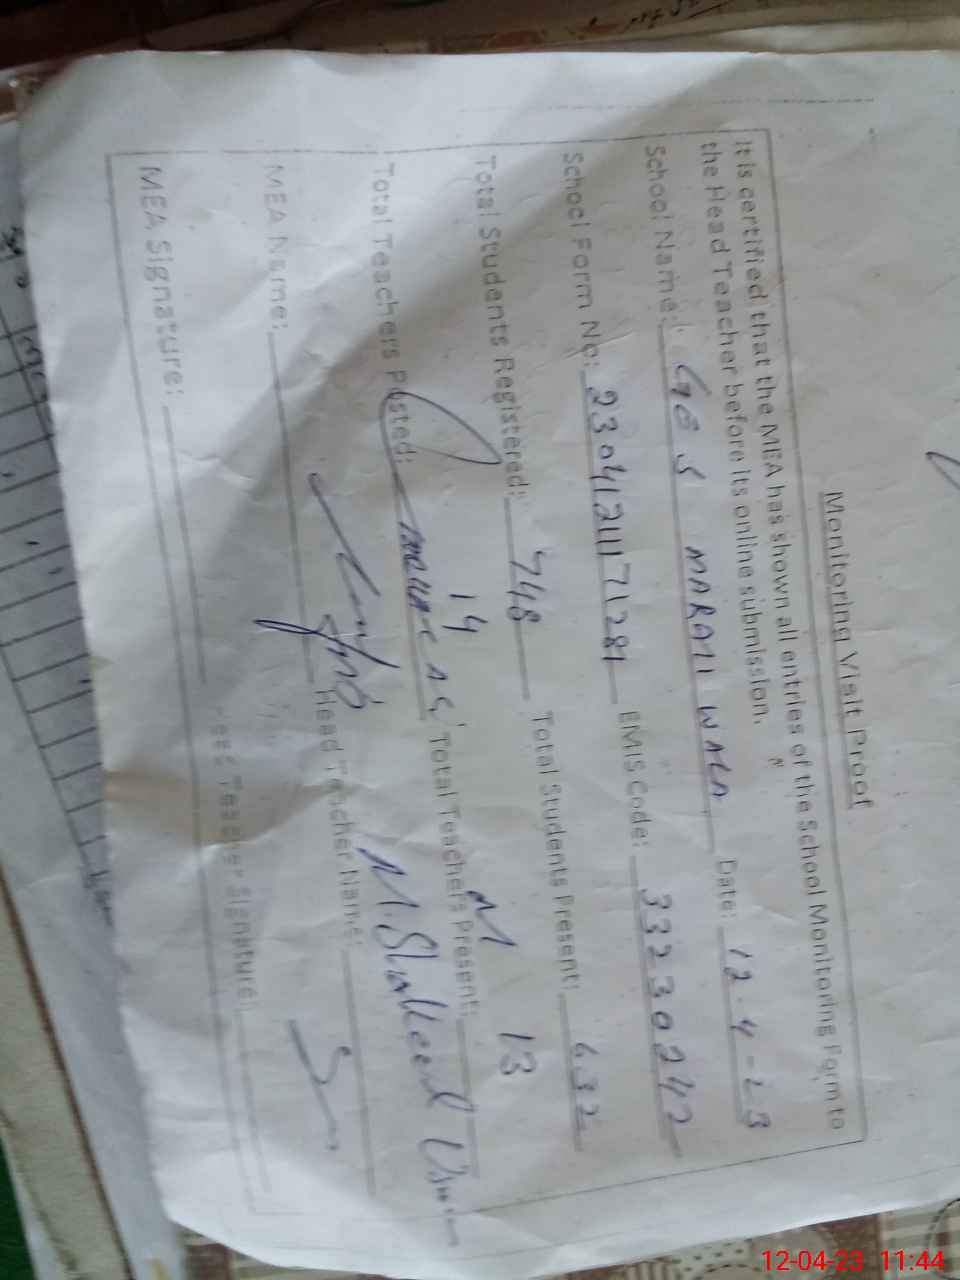 Monitoring Visit Proof
It is certified that the MEA has shown all entries of the School Monitoring Form to
the Head Teacher before its online submission.
School Name: GES MARALI WALA Date: 12-4-23
School Form No: 23041211171281 EMIS Code: 33230242
Total Students Registered: 748 Total Students Present: 632
14 13
Total Teachers Posted: Total Teachers Present:
M. Shakeel
MEA Name: Head Teacher Name:
MEA Signature: Head Teacher Signature:
12-04-23 11:44